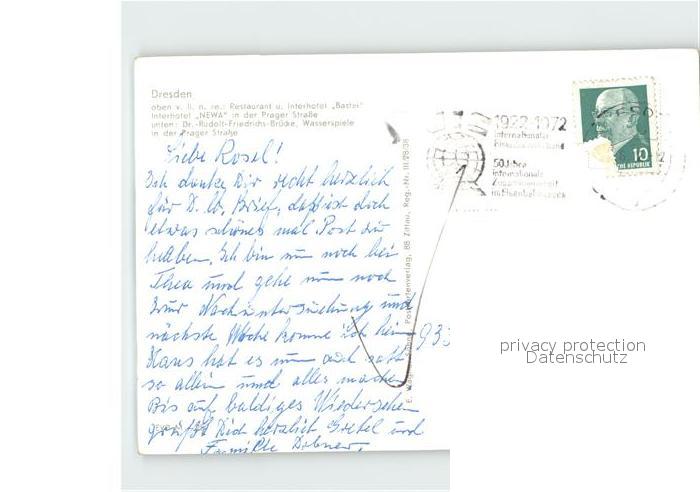 Dresden
oben v. li. n. re.: Restaurant u. Interhotel „Bastei"
Interhotel „NEWA" in der Prager Straße
unten: Dr.-Rudolf-Friedrichs-Brücke, Wasserspiele
in der Prager Straße
Liebe Rosel!
Ich danke Dir recht herzlich
für D. lb. Brief, daß ist doch
etwas schönes mal Post zu
haben. Ich bin nun noch bei
Thea und gehe nun noch
zur Nachuntersuchung und
nächste Woche komme ich heim
Hans hat es nun auch satt
so allein und alles machen
Bis auf baldiges Wiedersehen
grüßt Dich herzlich Gretel und
Familie
1922-1972
Internationaler
50 Jahre
internationale
Zusammenarbeit
im Eisenbahnwesen
10
REPUBLIK
Postkartenverlag, 88 Zittau, Reg.-Nr. III/28/38
93
privacy protection
Datenschutz